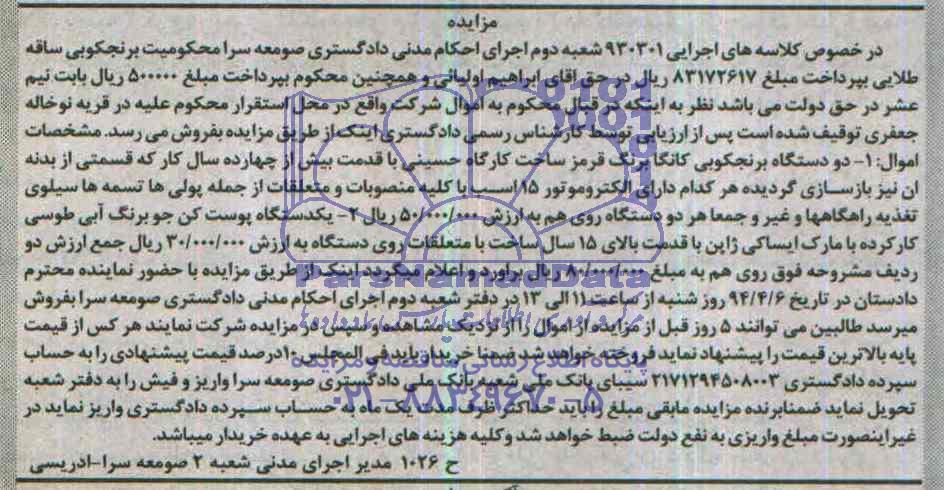 مزایده
در خصوص کلاسه های اجرایی ۹۳۰۳۰۱ شعبه دوم اجرای احکام مدنی دادگستری صومعه سرا محکومیت برنجکوبی ساقه
طلایی بپرداخت مبلغ ۸۳۱۷۲۶۱۷ ریال در حق آقای ابراهیم اولیائی و همچنین محکوم بپرداخت مبلغ ۵۰۰۰۰۰ ریال بابت نیم
عشر در حق دولت می باشد نظر به اینکه در قبال محکوم به اموال شرکت واقع در محل استقرار محکوم علیه در قریه نوخاله
جعفری توقیف شده است پس از ارزیابی توسط کارشناس رسمی دادگستری اینک از طریق مزایده بفروش می رسد. مشخصات
اموال: ۱- دو دستگاه برنجکوبی کانگا برنگ قرمز ساخت کارگاه حسینی با قدمت بیش از چهارده سال کار که قسمتی از بدنه
ان نیز بازسازی گردیده هر کدام دارای الکتروموتور ۱۵ اسب با کلیه منصوبات و متعلقات از جمله پولی ها تسمه ها سیلوی
تغذیه راهگاهها و غیر و جمعا هر دو دستگاه روی هم به ارزش ۵۰/۰۰۰/۰۰۰ ریال ۲- یکدستگاه پوست کن جو برنگ آبی طوسی
کارکرده با مارک ایساکی ژاپن با قدمت بالای ۱۵ سال ساخت با متعلقات روی دستگاه به ارزش ۳۰/۰۰۰/۰۰۰ ریال جمع ارزش دو
ردیف مشروحه فوق روی هم به مبلغ ۸۰/۰۰۰/۰۰۰ ریال براورد و اعلام میگردد اینک از طریق مزایده با حضور نماینده محترم
دادستان در تاریخ ۹۴/۴/۶ روز شنبه از ساعت ۱۱ الی ۱۳ در دفتر شعبه دوم اجرای احکام مدنی دادگستری صومعه سرا بفروش
میرسد طالبین می توانند ۵ روز قبل از مزایده از اموال را از نزدیک مشاهده و سپس در مزایده شرکت نمایند هر کس از قیمت
پایه بالاترین قیمت را پیشنهاد نماید فروخته خواهد شد ضمنا خریدار باید فی المجلس ۱۰درصد قیمت پیشنهادی را به حساب
سپرده دادگستری ۲۱۷۱۲۹۴۵۰۸۰۰۳ سیبای بانک ملی شعبه بانک ملی دادگستری صومعه سرا واریز و فیش را به دفتر شعبه
تحویل نماید ضمنا برنده مزایده مابقی مبلغ را باید حداکثر ظرف مدت یک ماه به حساب سپرده دادگستری واریز نماید در
غیراینصورت مبلغ واریزی به نفع دولت ضبط خواهد شد و کلیه هزینه های اجرایی به عهده خریدار میباشد.
ح ۱۰۲۶ مدیر اجرای مدنی شعبه ۲ صومعه سرا-ادریسی
ParsNamadData
پایگاه اطلاع رسانی مناقصه و مزایده
۰۲۱-۸۸۳۴۹۶۷۰-۵